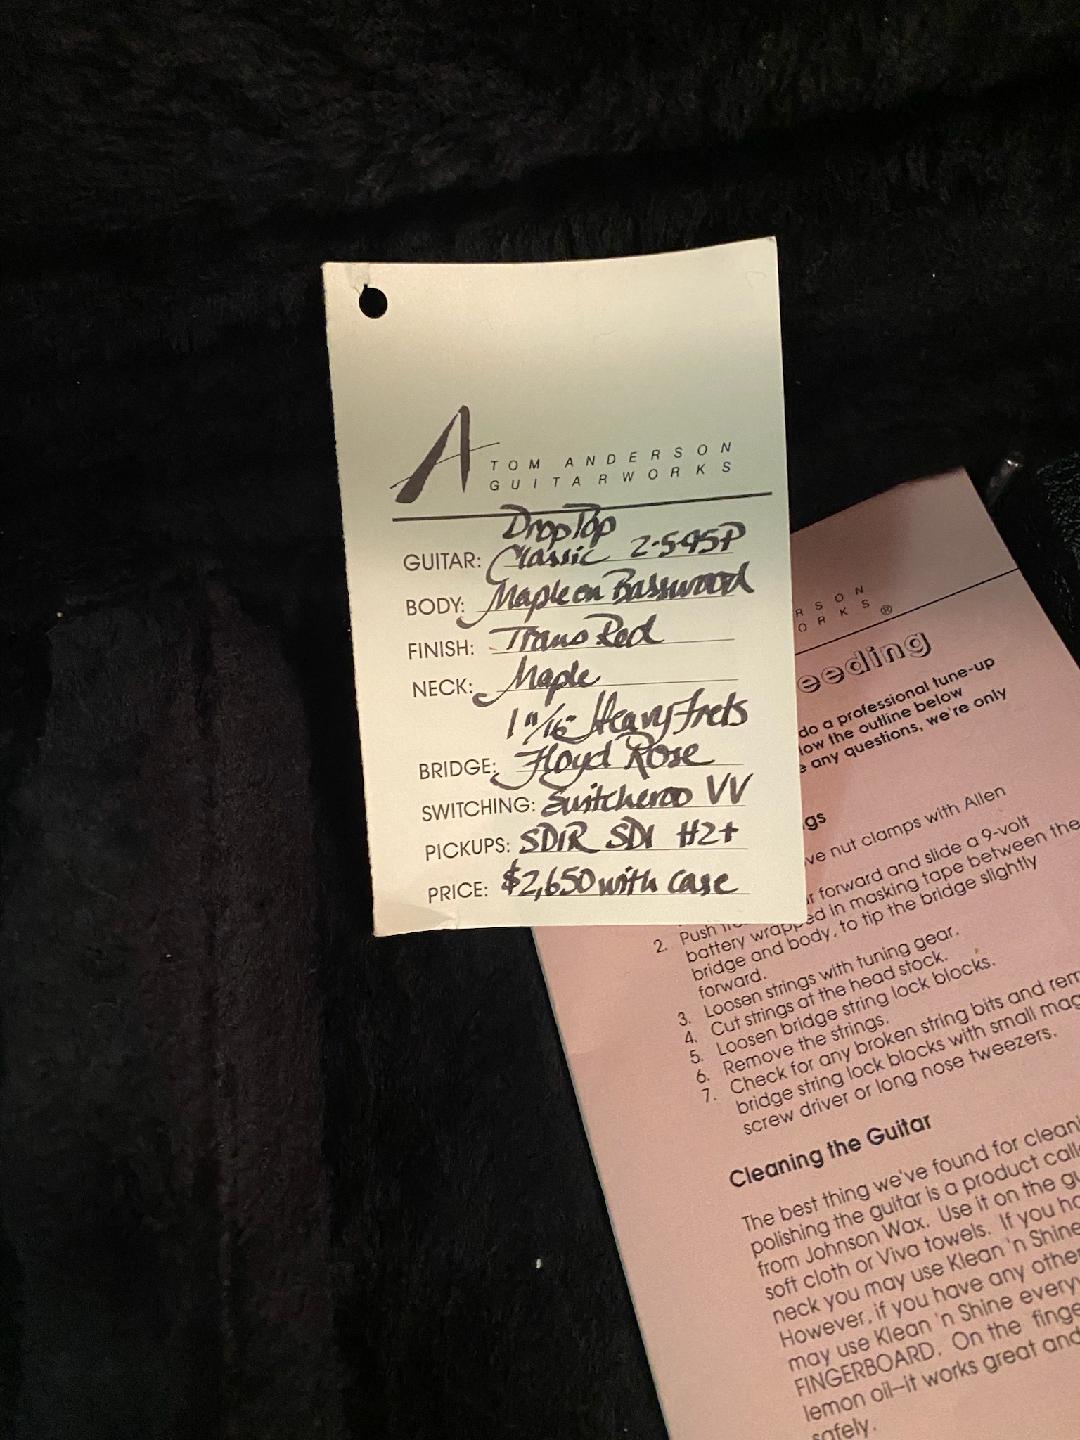 A TOM ANDERSON
GUITARWORKS
Drop Top
GUITAR: Classic 2-5-95P
BODY: Maple on Basswood
FINISH: Trans Red
NECK: Maple
1 11/16 Heavy frets
BRIDGE: Floyd Rose
SWITCHING: Switcheroo VV
PICKUPS: SD1R SD1 H2+
PRICE: $2,650 with case
RSON
ORKS®
eeding
do a professional tune-up
low the outline below
any questions, we're only
gs
ve nut clamps with Allen
2. Push forward and slide a 9-volt
battery wrapped in masking tape between the
bridge and body, to tip the bridge slightly
forward.
3. Loosen strings with tuning gear.
4. Cut strings at the head stock.
5. Loosen bridge string lock blocks.
6. Remove the strings.
7. Check for any broken string bits and rem
bridge string lock blocks with small mag
screw driver or long nose tweezers.
Cleaning the Guitar
The best thing we've found for cleani
polishing the guitar is a product calle
from Johnson Wax. Use it on the gu
soft cloth or Viva towels. If you ha
neck you may use Klean 'n Shine
However, if you have any othe
may use Klean 'n Shine everyw
FINGERBOARD. On the finge
lemon oil—it works great and
safely.